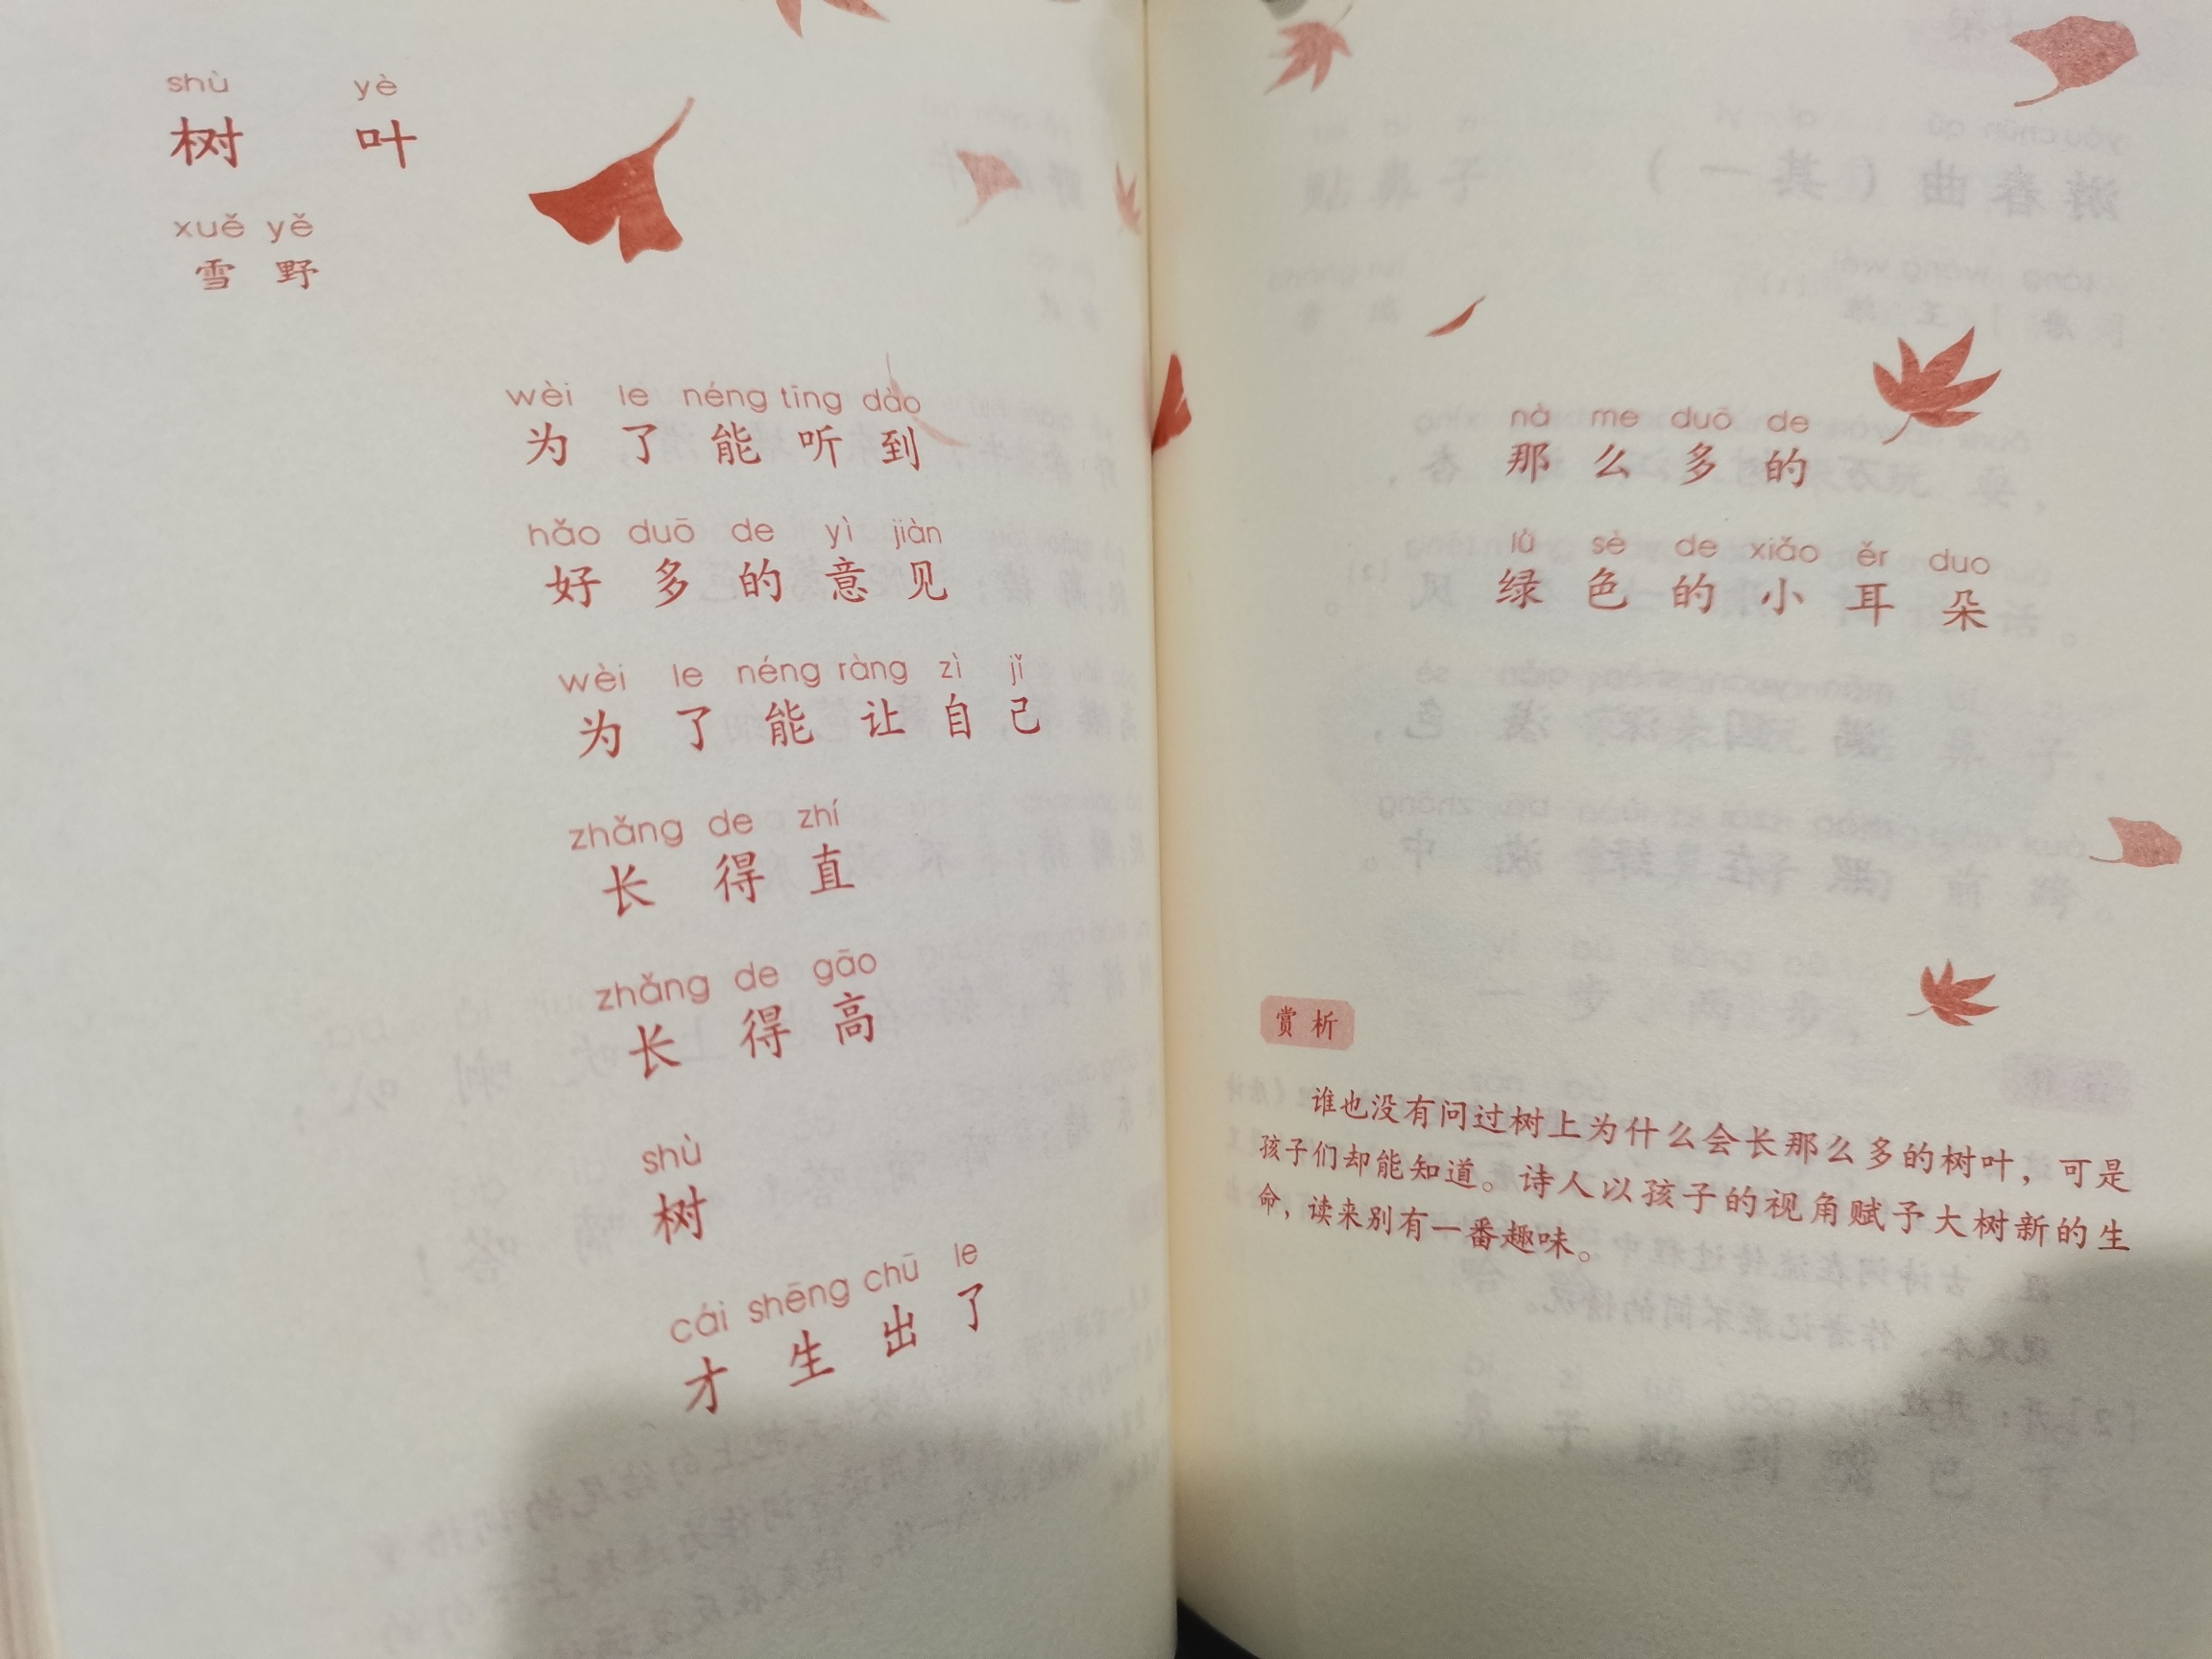 shù yè
树 叶
xuě yě
雪 野
wèi le néng tīng dào
为 了 能 听 到
hǎo duō de yì jiàn
好 多 的 意 见
wèi le néng ràng zì jǐ
为 了 能 让 自 己
zhǎng de zhí
长 得 直
zhǎng de gāo
长 得 高
shù
树
cái shēng chū le
才 生 出 了
nà me duō de
那 么 多 的
lǜ sè de xiǎo ěr duo
绿 色 的 小 耳 朵
赏 析
谁也没有问过树上为什么会长那么多的树叶，可是
孩子们却能知道。诗人以孩子的视角赋予大树新的生
命，读来别有一番趣味。